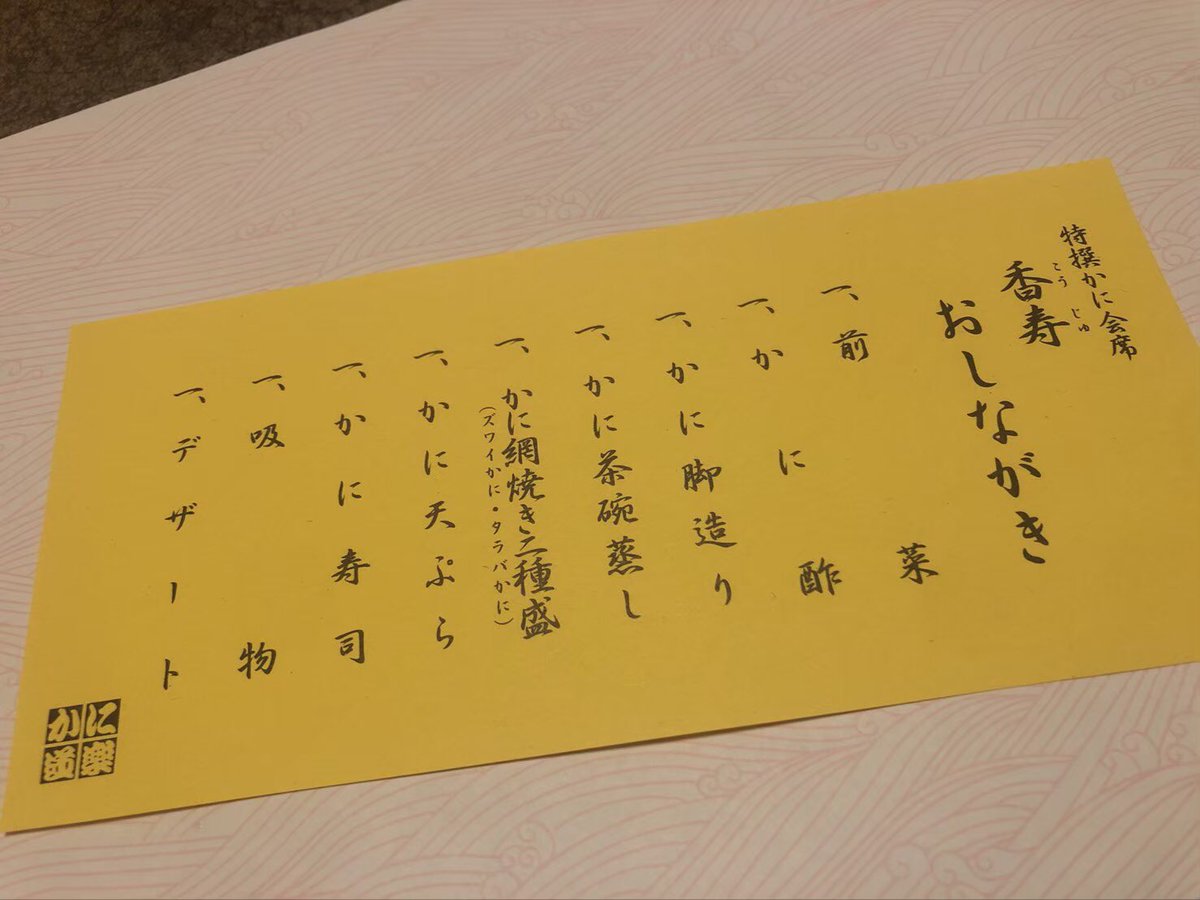 特撰かに会席
香寿
こうじゅ
おしながき
一、前菜
一、かに酢
一、かに脚造り
一、かに茶碗蒸し
一、かに網焼き二種盛
(ズワイかに・タラバかに)
一、かに天ぷら
一、かに寿司
一、吸物
一、デザート
かに道楽